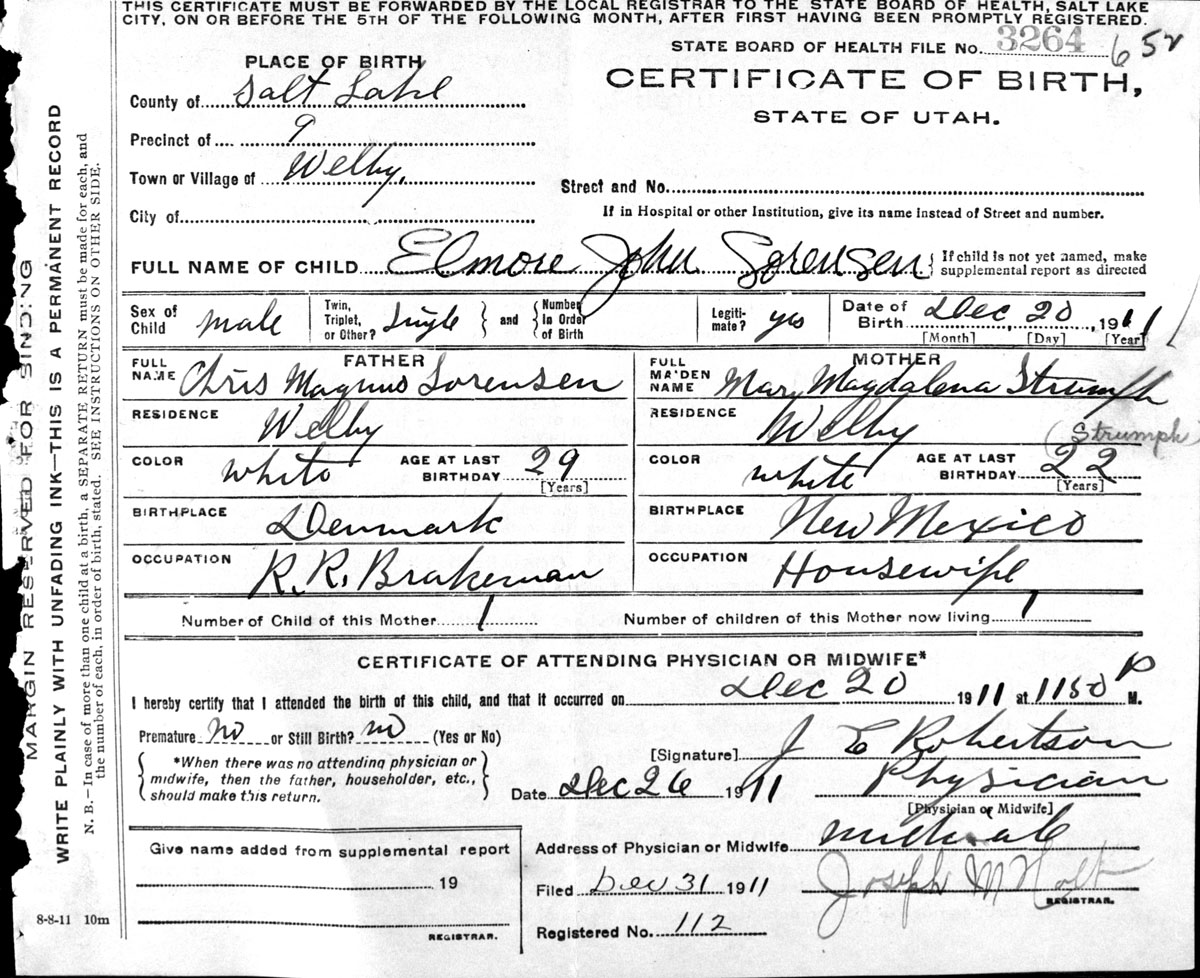 THIS CERTIFICATE MUST BE FORWARDED BY THE LOCAL REGISTRAR TO THE STATE BOARD OF HEALTH, SALT LAKE
CITY, ON OR BEFORE THE 5TH OF THE FOLLOWING MONTH, AFTER FIRST HAVING BEEN PROMPTLY REGISTERED.
STATE BOARD OF HEALTH FILE No. 3264 652
CERTIFICATE OF BIRTH,
STATE OF UTAH.
PLACE OF BIRTH
County of Salt Lake
Precinct of 9
Town or Village of Welby,
City of
Street and No.
If in Hospital or other Institution, give its name instead of Street and number.
FULL NAME OF CHILD Elmore John Sorensen { If child is not yet named, make
supplemental report as directed
Sex of Child male Twin, Triplet, or Other? Single } and { Number in Order of Birth Legiti-mate? yes Date of Birth Dec, 20, 1911
[Month] [Day] [Year]
FATHER
FULL NAME Chris Magnus Sorensen
RESIDENCE Welby
COLOR white AGE AT LAST BIRTHDAY 29
[Years]
BIRTHPLACE Denmark
OCCUPATION R. R. Brakeman
MOTHER
FULL MAIDEN NAME Mary Magdalena Strumph
RESIDENCE Welby
(Strumph)
COLOR white AGE AT LAST BIRTHDAY 22
[Years]
BIRTHPLACE New Mexico
OCCUPATION Housewife
Number of Child of this Mother 1 Number of children of this Mother now living 1
CERTIFICATE OF ATTENDING PHYSICIAN OR MIDWIFE*
I hereby certify that I attended the birth of this child, and that it occurred on Dec 20 1911 at 1150 P M.
Premature no or Still Birth? no (Yes or No)
{ *When there was no attending physician or
midwife, then the father, householder, etc.,
should make this return. }
[Signature] J E Robertson
Date Dec 26 1911 Physician
[Physician or Midwife]
Address of Physician or Midwife Midvale
Filed Dec 31 1911 Joseph M Holt
REGISTRAR.
Registered No. 112
Give name added from supplemental report
19
REGISTRAR.
8-8-11 10m
MARGIN RESERVED FOR BINDING
WRITE PLAINLY WITH UNFADING INK—THIS IS A PERMANENT RECORD
N. B.—In case of more than one child at a birth, a SEPARATE RETURN must be made for each, and
the number of each, in order of birth, stated. SEE INSTRUCTIONS ON OTHER SIDE.